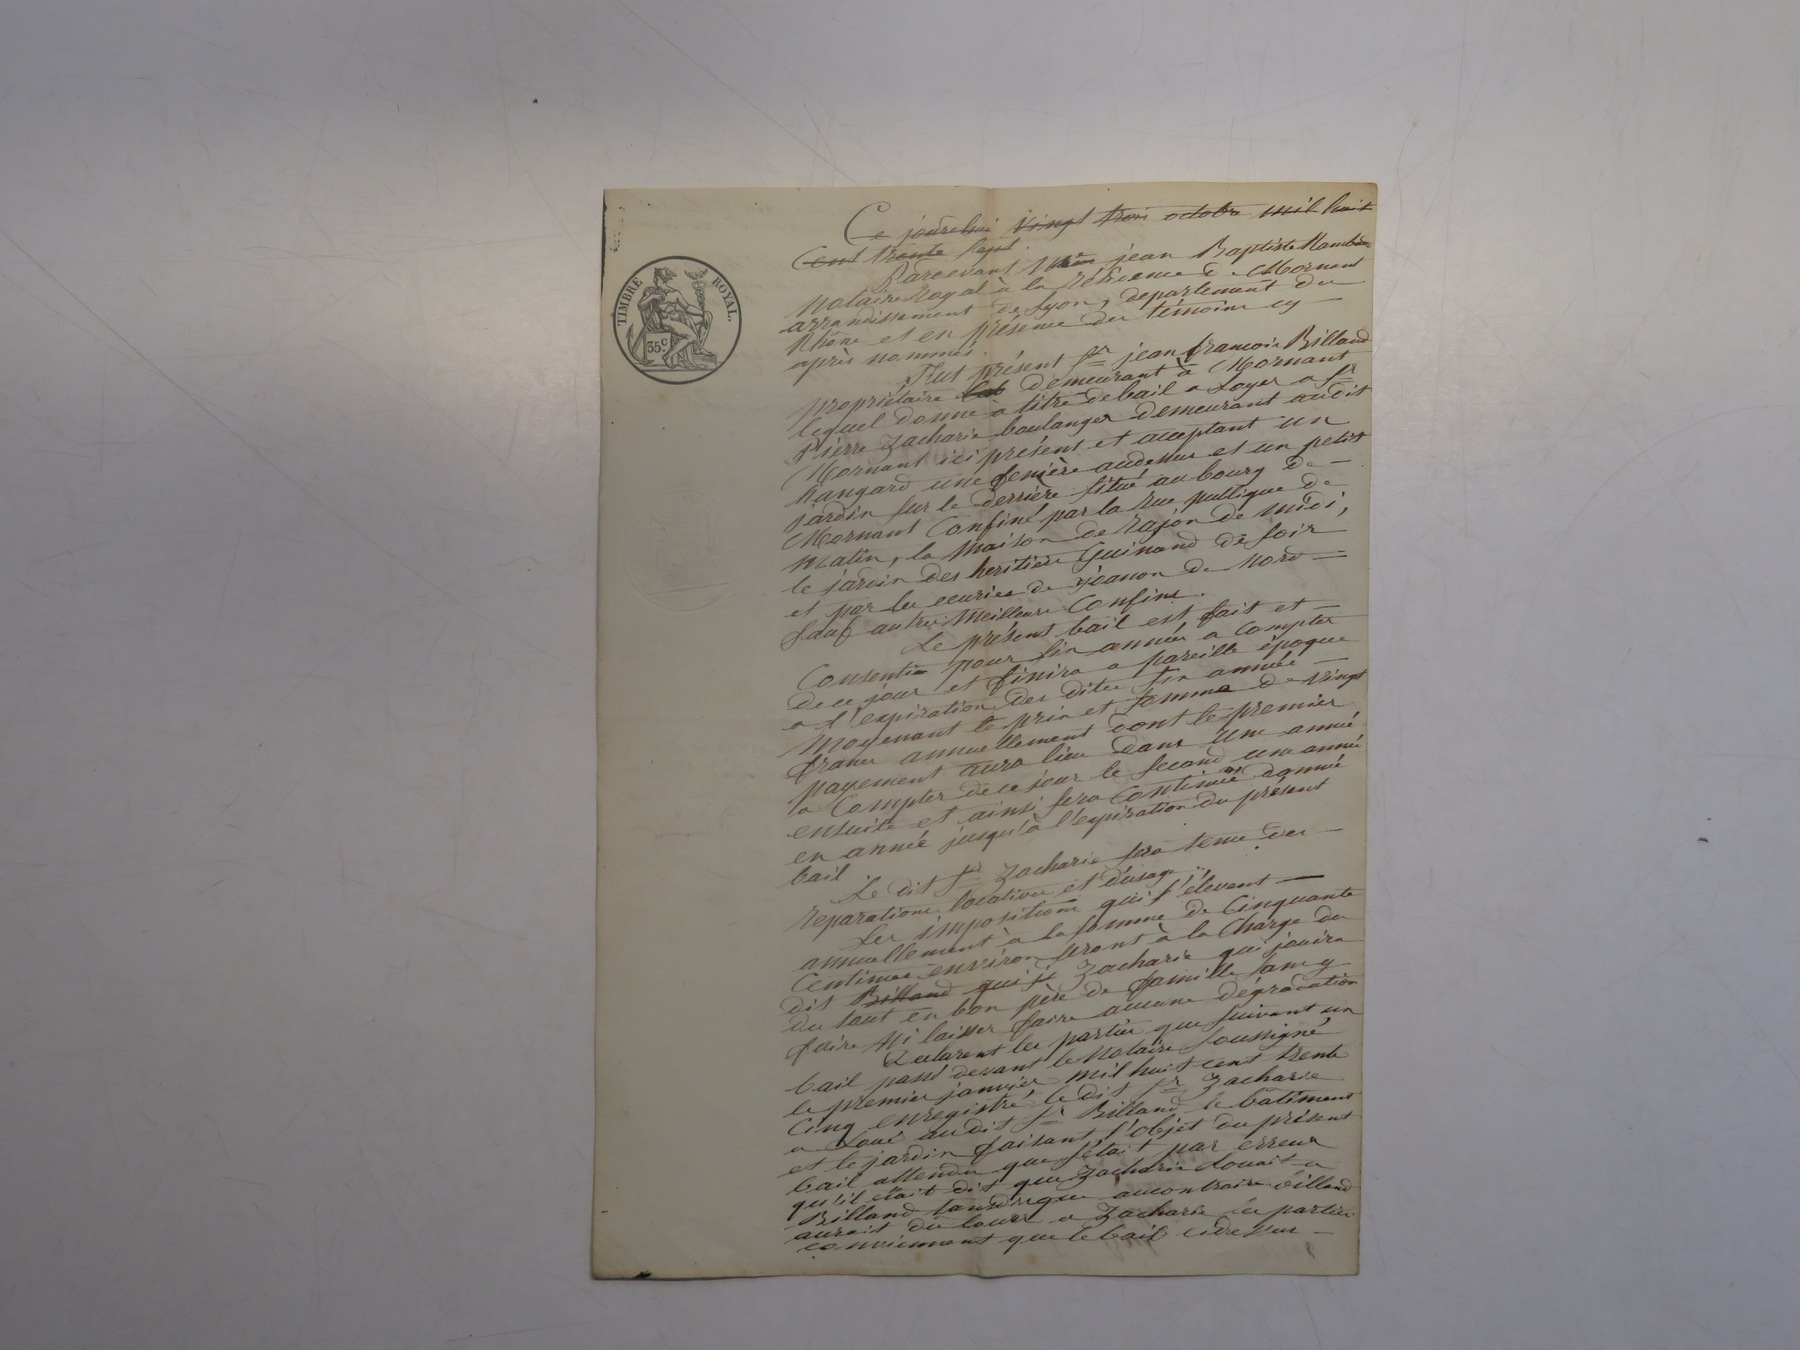 TIMBRE ROYAL.
35c
Ce jourdhui vingt trois octobre mil huit
Cent trente sept.
Pardevant Me jean Baptiste
Notaire Royal à la résidence de Mornant
arrondissement de Lyon, departement du
Rhône et en présence des témoins cy
après nommés.
Fut présent sr jean françois Billand
propriétaire demeurant à Mornant
lequel donne a titre de bail a Loyer a sr
Pierre Zacharie boulanger demeurant audit
Mornant ici présent et acceptant un
hangard une fenière audessus et un petit
jardin sur le derrière situé au bourg de
Mornant Confiné par la rue publique de
matin, la maison de razon de midi,
le jardin des heritiers Guinand de soir
et par les ecuries de jeanon de Nord
sauf autres Meilleurs Confins.
Le présent bail est fait et
Consentie pour six années a compter
de ce jour et finira a pareille époque
a l'expiration des dites six année
Moyenant le prix et somme de vingt
francs annuellement dont le premier
payement aura lieu dans une année
a Compter de ce jour le second une année
ensuite et ainsi sera continué d'année
en année jusqu'à l'expiration du présent
bail.
Le dit sr Zacharie sera tenu des
reparations location et d'usage
Les impositions qui s'élevent
annuellement à la somme de Cinquante
Centimes environ seront à la Charge du
dit Billand qui sr Zacharie qui jouira
du tout en bon père de famille sans y
faire Ni laisser faire aucune dégradation
Déclarent les parties que suivant un
bail passé devant le Notaire soussigné
le premier janvier mil huit cent trente
cinq enregistré le dit sr Zacharie
a Loué audit sr Billand le batiment
et le jardin faisant l'objet du présent
bail attendu que s'était par erreur
qu'il était dit que Zacharie louait a
Billand tandisque aucontraire billand
aurait du louer a Zacharie les parties
conviennent que le bail cidessus